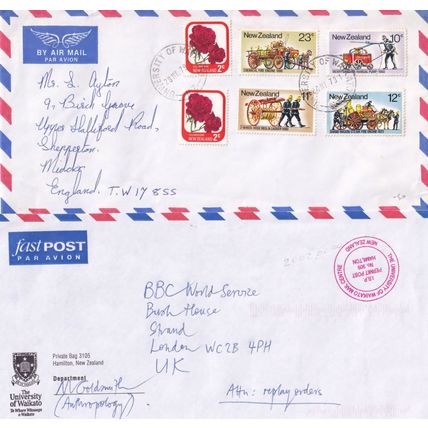 BY AIR MAIL
PAR AVION
NEW ZEALAND 2c
New Zealand 23c
New Zealand 10c
NEW ZEALAND 2c
New Zealand
New Zealand 12c
UNIVERSITY OF WA
Mr. S. Ayton
9, Birch Grove
Upper Halliford Road,
Shepperton,
Middx
England. T.W17 8SS
fast POST
PAR AVION
THE UNIVERSITY OF WAIKATO MAIL CENTRE
I.R.P.
PERMIT POST
No. 909
HAMILTON
NEW ZEALAND
BBC World Service
Bush House
Strand
London WC2B 4PH
UK
Attn: replay orders
Private Bag 3105
Hamilton, New Zealand
Department
N Goldsmith
(Anthropology)
The
University
of Waikato
Te Whare Wānanga
o Waikato